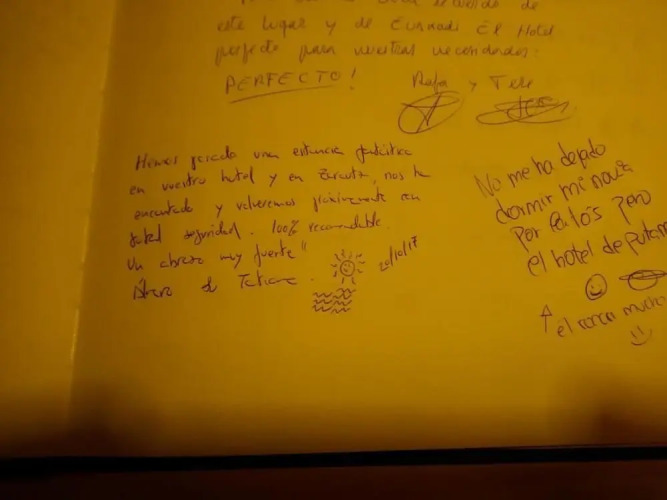 este lugar y de Euskadi El Hotel
perfecto para nuestras necesidades:
PERFECTO!
Rafa y Tere
Hemos pasado una estancia fantástica
en vuestro hotel y en Zarautz, nos ha
encantado y volveremos próximamente con
total seguridad. 100% recomendable.
Un abrazo muy fuerte"
Tatiana.
20/10/17
No me ha dejado
dormir mi novia
Por pero
el hotel de putam
↑ él ronca mucho